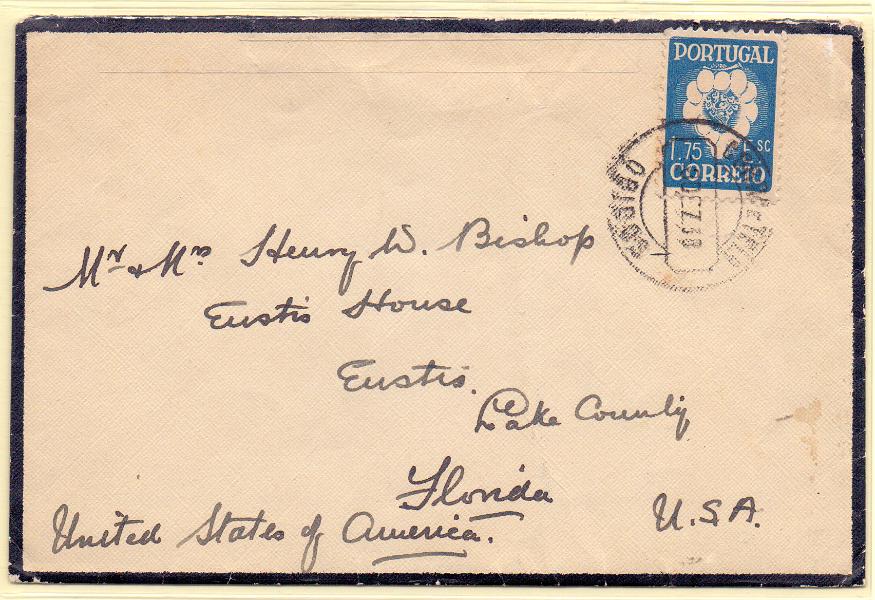 PORTUGAL
1.75 ESC
CORREIO
Mr & Mrs Henry W. Bishop
Eustis House
Eustis.
Lake County
Florida
U.S.A.
United States of America.